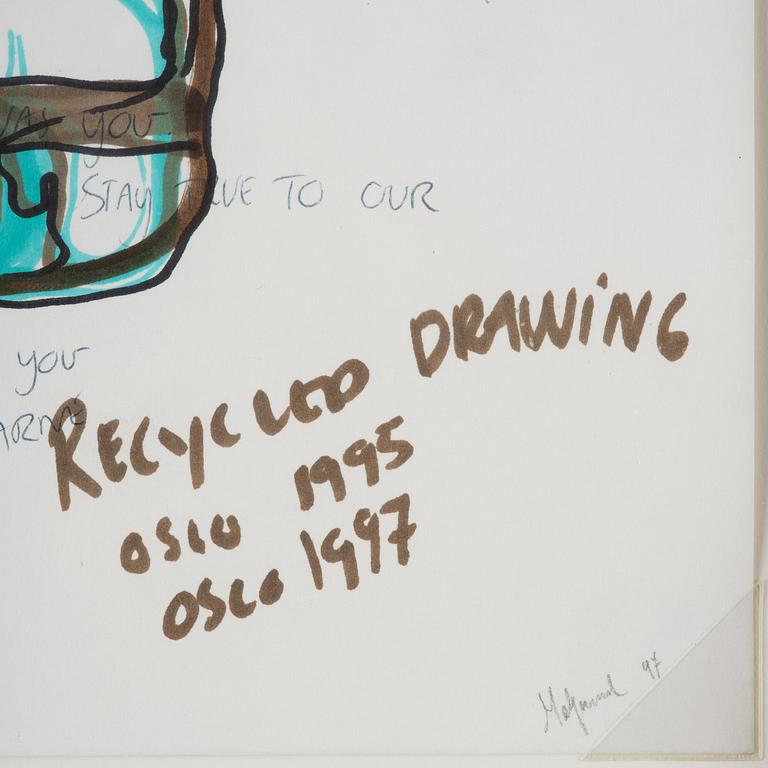 YOU.
STAY TRUE TO OUR
YOU
RECYCLED DRAWING
OSLO 1995
OSLO 1997
97